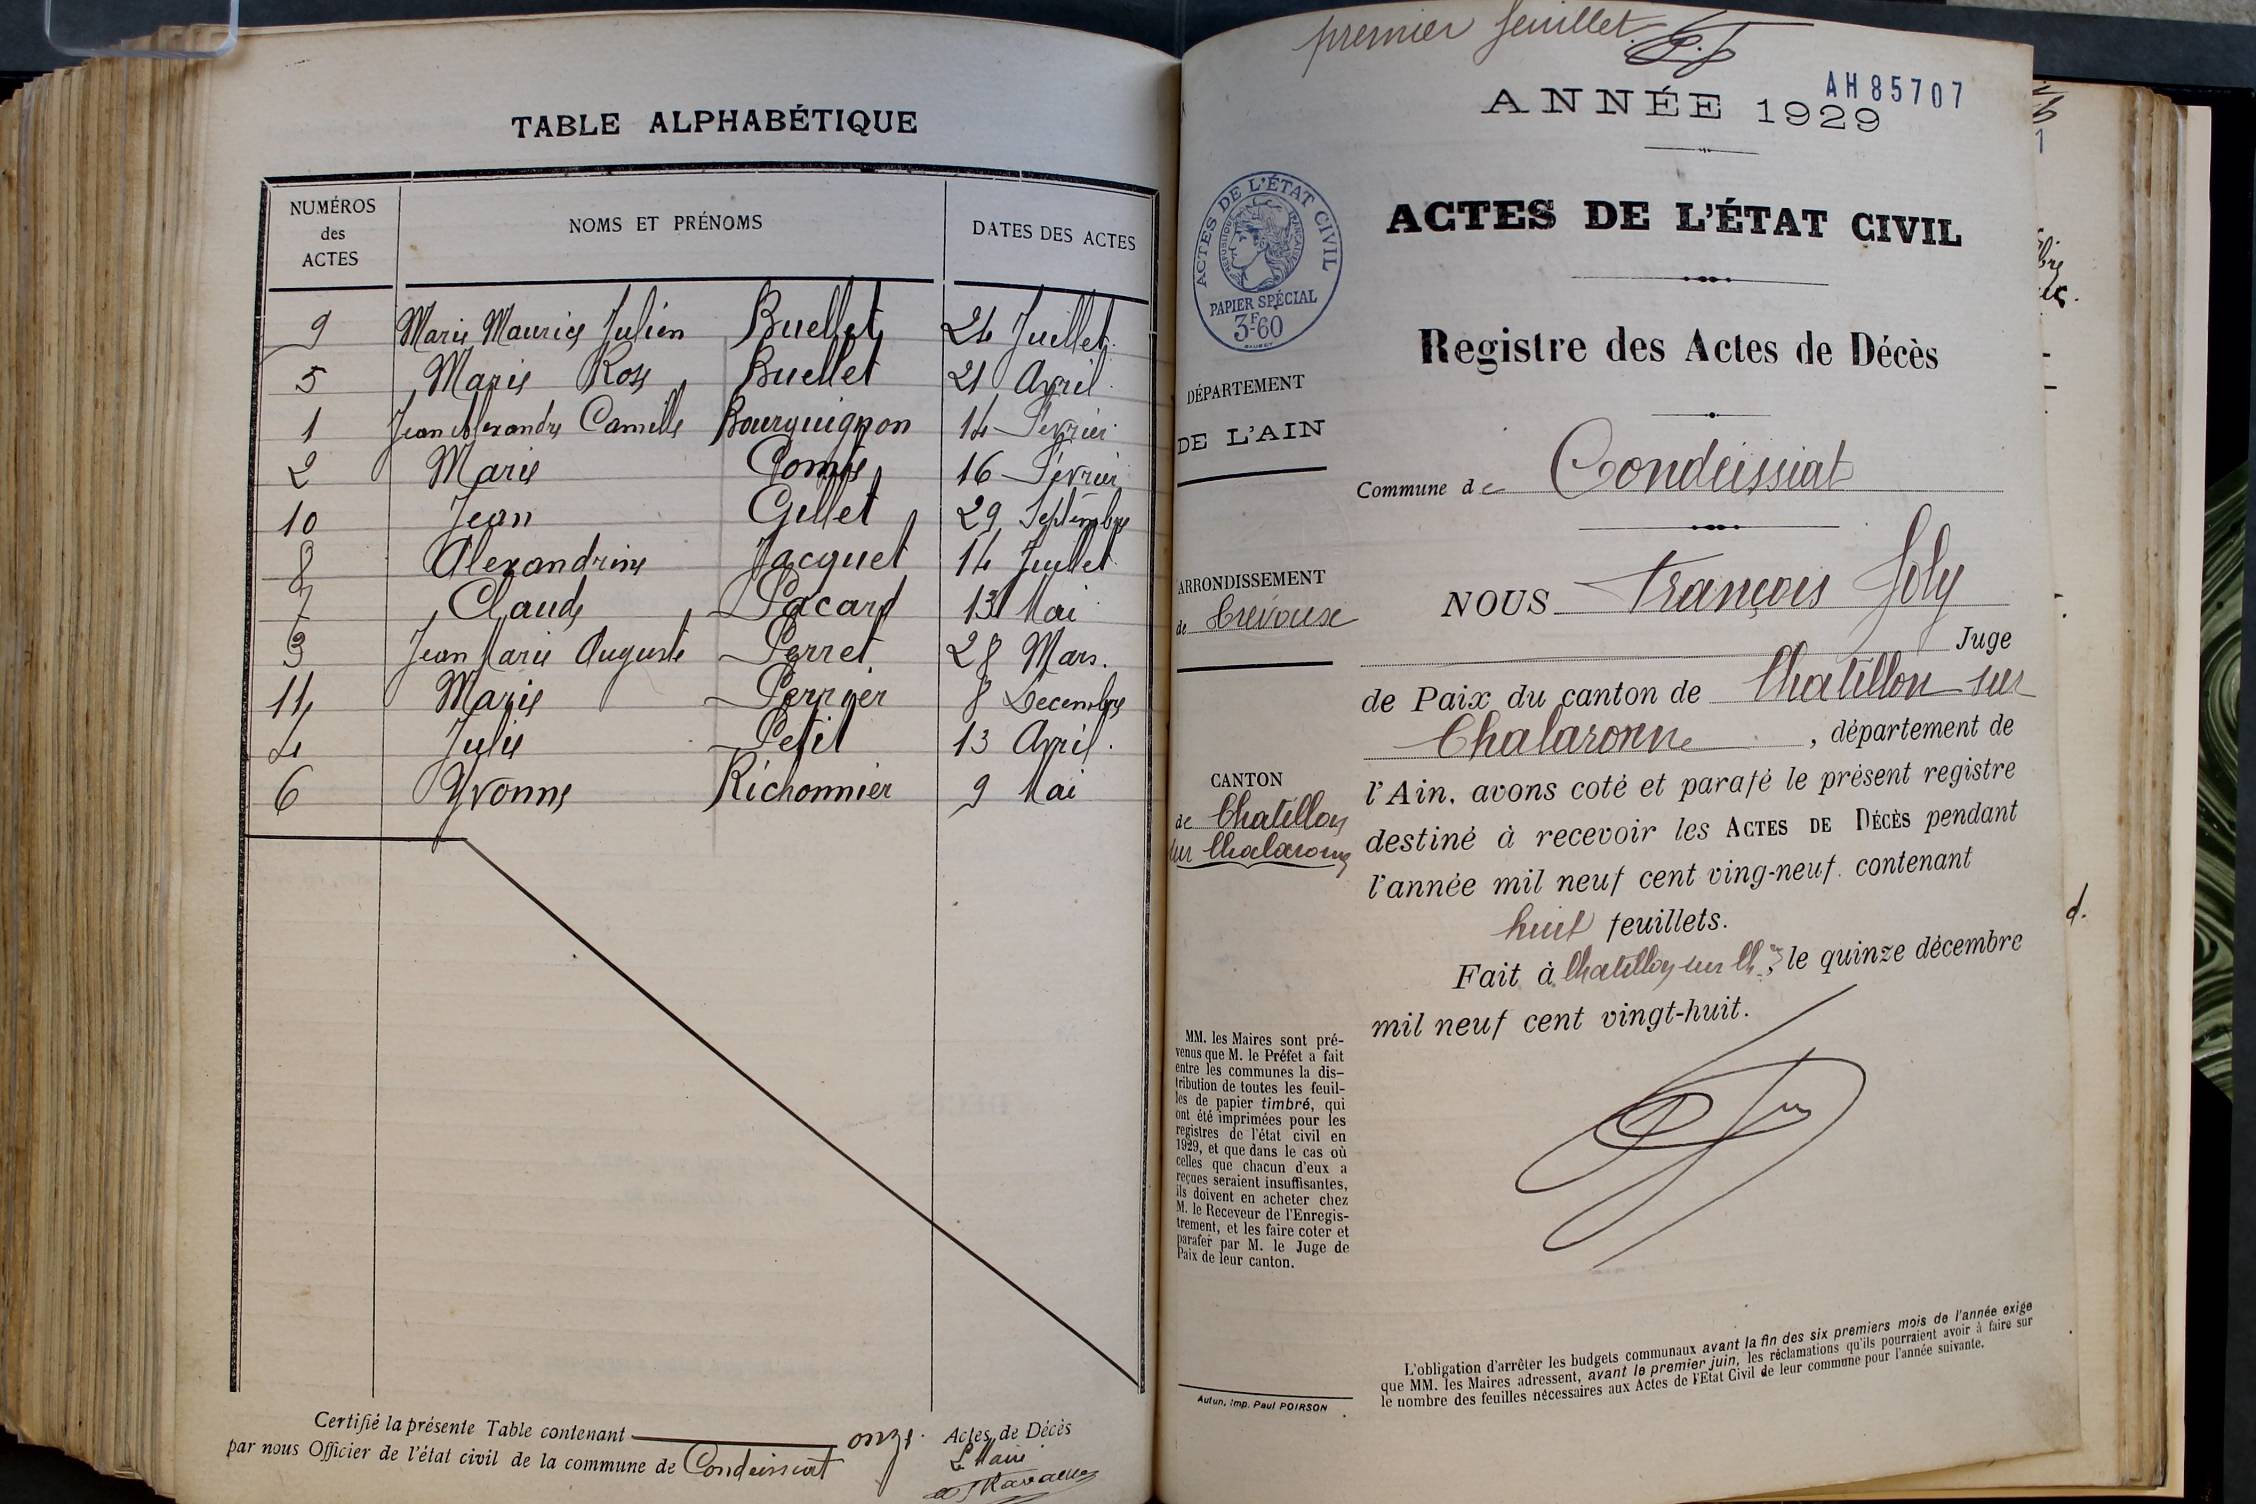 TABLE ALPHABÉTIQUE
NUMÉROS des ACTES NOMS ET PRÉNOMS DATES DES ACTES
9 Marie Maurice Julien Buellet 24 Juillet.
5 Marie Rose Buellet 21 Avril.
1 Jean Alexandre Camille Bourguignon 14 Février
2 Marie Comte 16 Février
10 Jean Gillet 29 Septembre
8 Alexandrine Jacquet 14 Juillet
7 Claude Pacard 13 Mai
3 Jean Marie Auguste Perret 28 Mars.
11 Marie Perrier 8 Decembre
4 Julie Petit 13 Avril.
6 Yvonne Richonnier 9 Mai
Certifié la présente Table contenant onze. Actes de Décès
par nous Officier de l'état civil de la commune de Condeissiat
Le Maire
premier feuillet.
AH85707
ANNÉE 1929
ACTES DE L'ÉTAT CIVIL
RÉPUBLIQUE FRANÇAISE
PAPIER SPÉCIAL
3F60
DÉPARTEMENT
DE L'AIN
ARRONDISSEMENT
de Trévoux
CANTON
de Chatillon
sur Chalaronne
MM. les Maires sont pré-
venus que M. le Préfet a fait
entre les communes la dis-
tribution de toutes les feuil-
les de papier timbré, qui
ont été imprimées pour les
registres de l'état civil en
1929, et que dans le cas où
celles que chacun d'eux a
reçues seraient insuffisantes,
ils doivent en acheter chez
M. le Receveur de l'Enregis-
trement, et les faire coter et
parafer par M. le Juge de
Paix de leur canton.
Autun, Imp. Paul POIRSON
ACTES DE L'ÉTAT CIVIL
Registre des Actes de Décès
Commune de Condeissiat
NOUS François Joly
Juge
de Paix du canton de Chatillon sur
Chalaronne, département de
l'Ain, avons coté et parafé le présent registre
destiné à recevoir les ACTES DE DÉCÈS pendant
l'année mil neuf cent ving-neuf. contenant
huit feuillets.
Fait à Chatillon sur Ch.ne, le quinze décembre
mil neuf cent vingt-huit.
L'obligation d'arrêter les budgets communaux avant la fin des six premiers mois de l'année exige
que MM. les Maires adressent, avant le premier juin, les réclamations qu'ils pourraient avoir à faire sur
le nombre des feuilles nécessaires aux Actes de l'Etat Civil de leur commune pour l'année suivante.